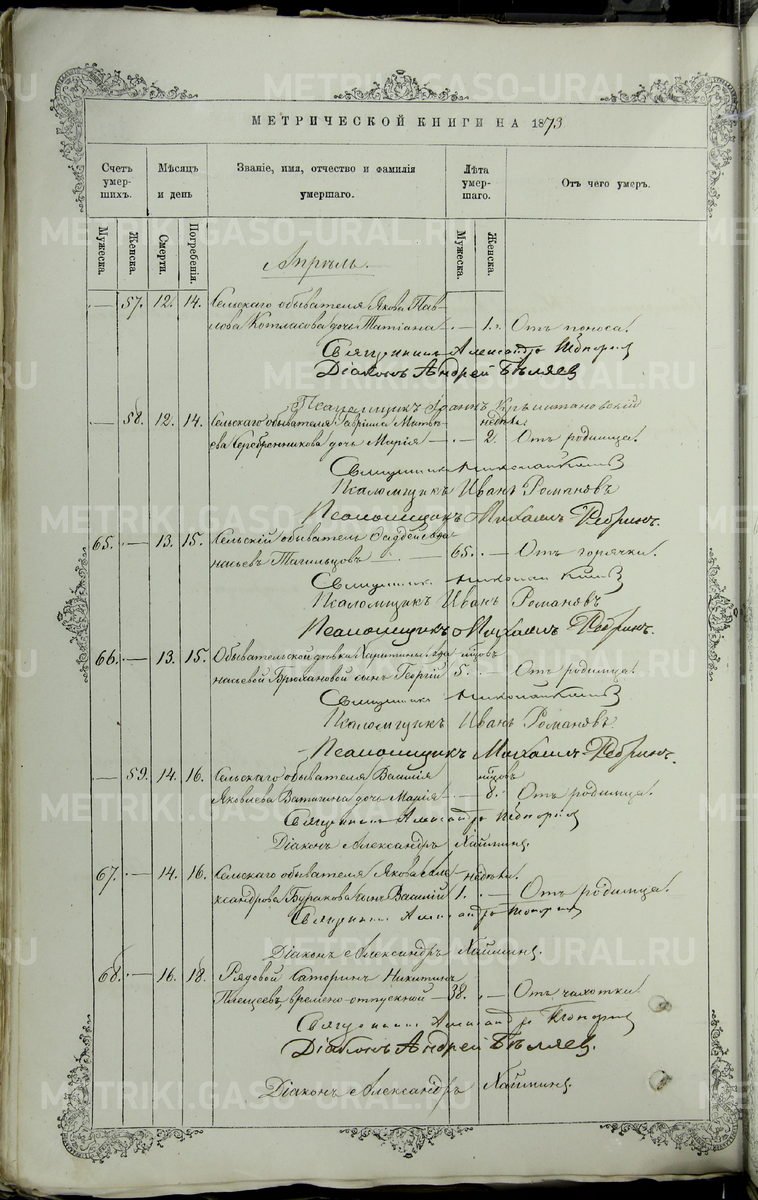 МЕТРИЧЕСКОЙ КНИГИ НА 1873
Счетъ умер- шихъ.
Мѣсяцъ и день
Званіе, имя, отчество и фамилія умершаго.
Лѣта умер- шаго.
Отъ чего умеръ.
Мужеска.
Женска.
Смерти.
Погребенія.
Мужеска.
Женска.
Апрѣль.
— 57. 12. 14. Сельскаго обывателя Якова Пав-
лова Котласова дочь Татіана — . — 1 г. Отъ поноса.
Священникъ Александръ
Діаконъ Андрей Бѣляев
Псаломщикъ Іоаннъ
— 58. 12. 14. Сельскаго обывателя Гавріила Матвѣ- недѣли
ева Серебренникова дочь Марія — . — 2. Отъ родимца.
Священникъ Николай
Псаломщикъ Иванъ Романовъ
Псаломщикъ Михаилъ Ребринъ.
65. — 13. 15. Сельскій обыватель
Тагильцовъ — 65. — Отъ горячки.
Священникъ Николай
Псаломщикъ Иванъ Романовъ
Псаломщикъ Михаилъ Ребринъ.
66. — 13. 15. Обывательской дѣвки Харитины
Брюхановой сынъ Георгій 5. — Отъ родимца.
Священникъ Николай
Псаломщикъ Иванъ Романовъ.
Псаломщикъ Михаилъ Ребринъ.
— 59. 14. 16. Сельскаго обывателя Василія
Яковлева Ватагина дочь Марія — . — 8. Отъ родимца.
Священникъ Александръ
Діаконъ Александръ Хайминъ.
67. — 14. 16. Сельскаго обывателя Якова Але- недѣли.
ксандрова Буракова сынъ Василій 1. — Отъ родимца.
Священникъ Александръ
Діаконъ Александръ Хайминъ.
68. — 16. 18. Рядовой Саторинъ Никитинъ
Плещеевъ, времено-отпускной — 38. — Отъ чахотки.
Священникъ Александръ
Діаконъ Андрей Бѣляев.
Діаконъ Александръ Хайминъ
METRIKI.GASO-URAL.RU